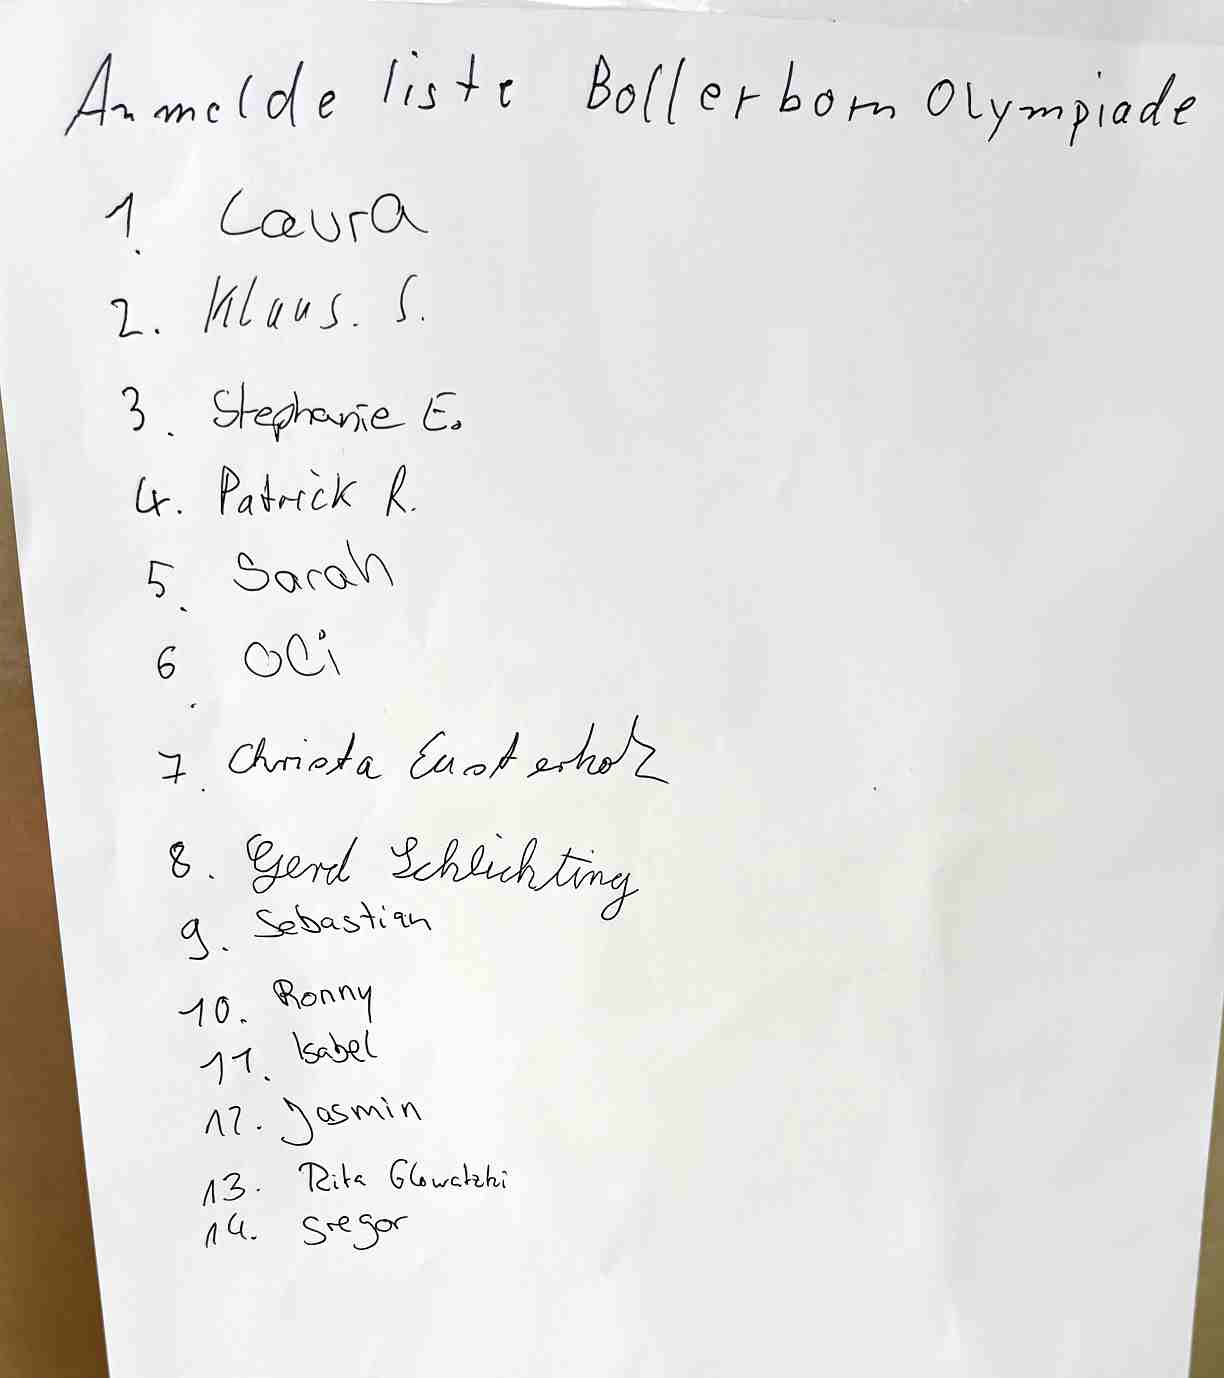 Anmelde liste Bollerborn Olympiade
1. Laura
2. Klaus. S.
3. Stephanie E.
4. Patrick R.
5. Sarah
6. Oli
7. Christa Eusterholz
8. Gerd Schlichting
9. Sebastian
10. Ronny
11. Isabel
12. Jasmin
13. Rita Glowatzki
14. Gregor